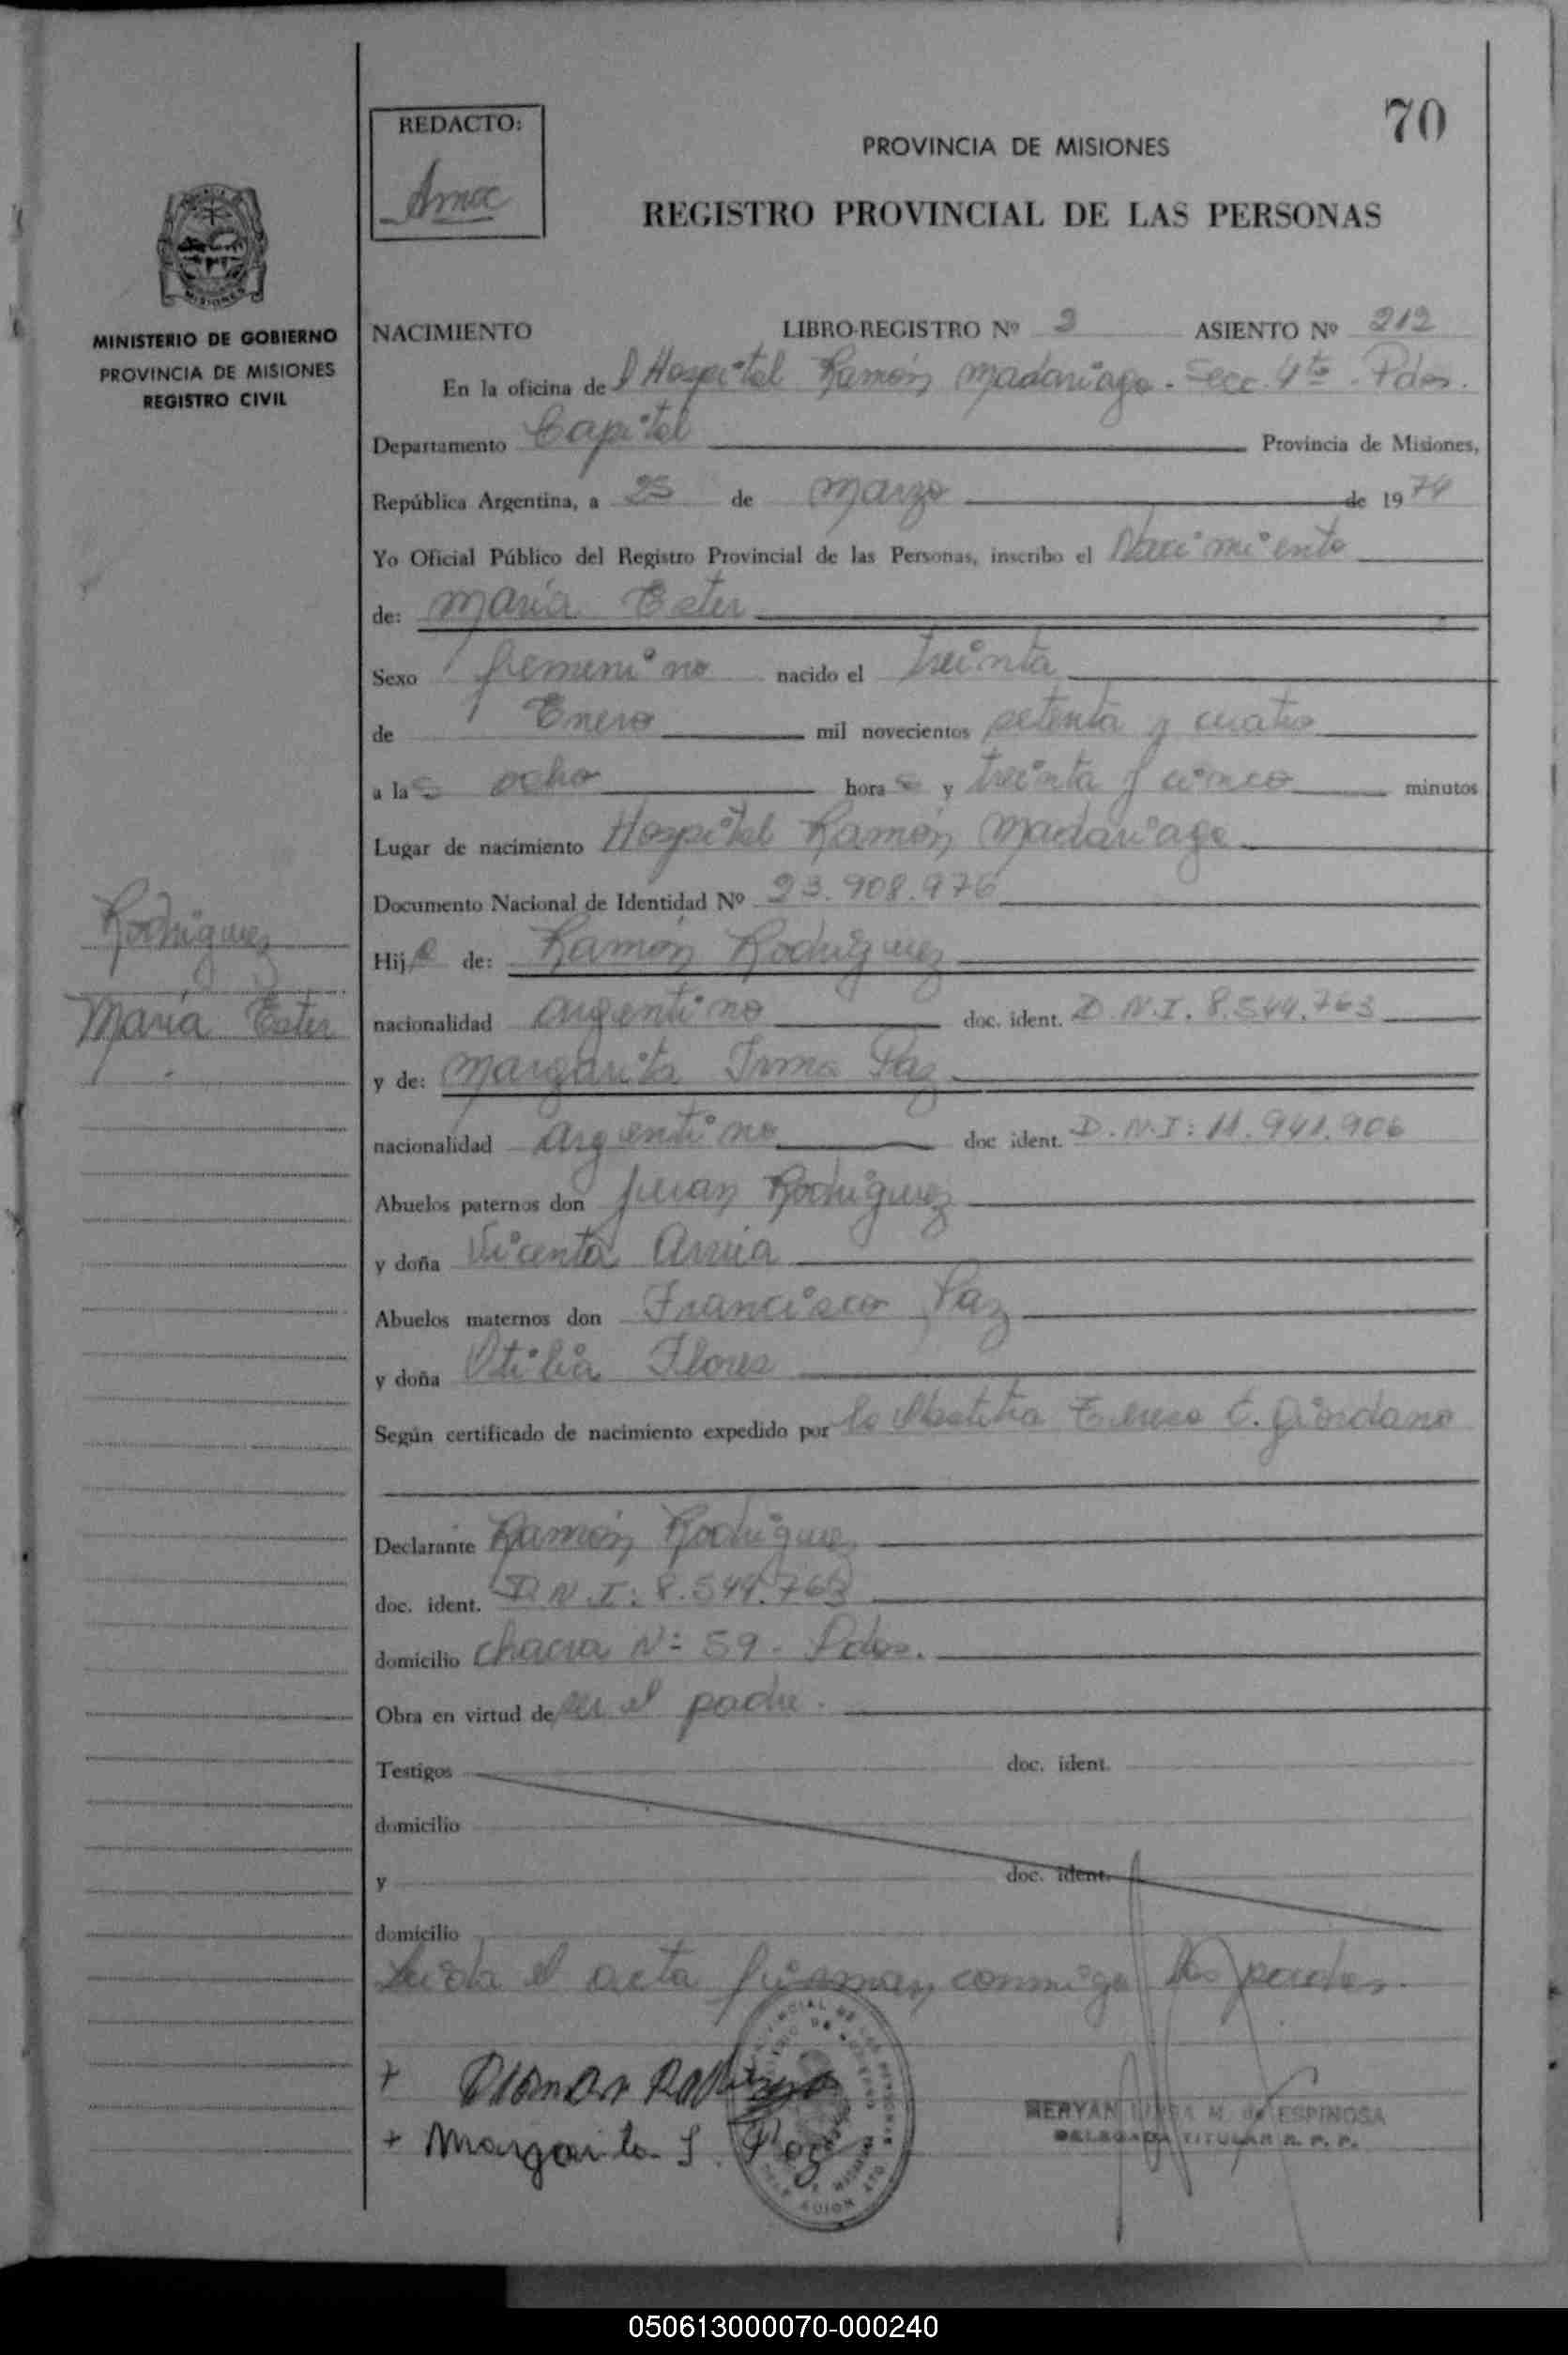 70
REDACTO:
PROVINCIA DE MISIONES
REGISTRO PROVINCIAL DE LAS PERSONAS
MISIONES
MINISTERIO DE GOBIERNO
PROVINCIA DE MISIONES
REGISTRO CIVIL
NACIMIENTO LIBRO-REGISTRO Nº 2 ASIENTO Nº 212
En la oficina de l Hospital Ramón Madariaga - Secc. 4ta - Pdas.
Departamento Capital Provincia de Misiones,
República Argentina, a 25 de Marzo de 1974
Yo Oficial Público del Registro Provincial de las Personas, inscribo el Nacimiento
de: María Ester
Sexo femenino nacido el treinta
de Enero mil novecientos setenta y cuatro
a las ocho horas y treinta y cinco minutos
Lugar de nacimiento Hospital Ramón Madariaga
Documento Nacional de Identidad Nº 23.908.976
Rodriguez
María Ester
Hija de: Ramón Rodriguez
nacionalidad argentino doc. ident. D.N.I. 8.544.763
y de: Margarita Irma Paz
nacionalidad argentina doc ident. D.N.I: 11.941.906
Abuelos paternos don Juan Rodriguez
y doña Vicenta
Abuelos maternos don Francisco Paz
y doña Otilia Flores
Según certificado de nacimiento expedido por la C. Giordano
Declarante Ramón Rodriguez
doc. ident. D.N.I: 8.544.763
domicilio Chacra Nº 59 - Pdas.
Obra en virtud de ser el padre.
Testigos doc. ident.
domicilio
y doc. ident.
domicilio
Leida el acta firman conmigo los padres.
+ Ramon Rodriguez
+ Margarita I. Paz
MERYAN M. de ESPINOSA
DELEGADA TITULAR R. P. P.
050613000070-000240